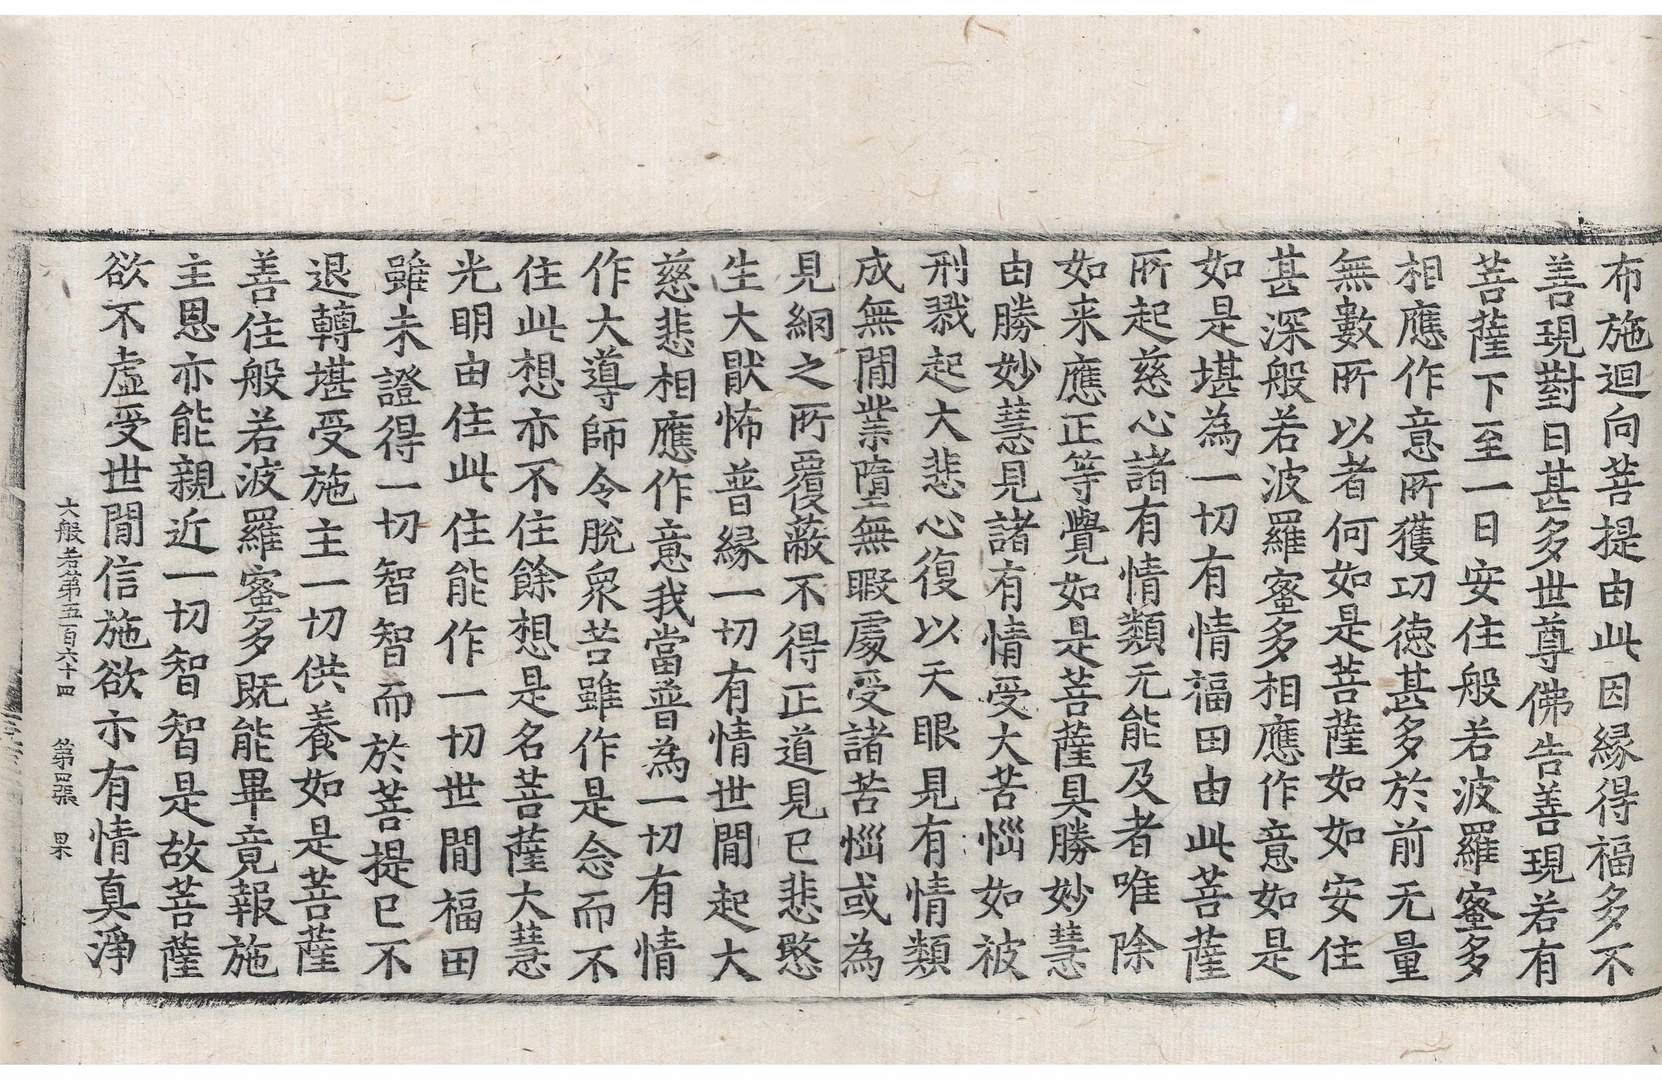 布施迴向菩提由此因縁得福多不
善現對曰甚多世尊佛告善現若有
菩薩下至一日安住般若波羅蜜多
相應作意所獲功德甚多於前无量
無數所以者何如是菩薩如如安住
甚深般若波羅蜜多相應作意如是
如是堪為一切有情福田由此菩薩
所起慈心諸有情類无能及者唯除
如来應正等覺如是菩薩具勝妙慧
由勝妙慧見諸有情受大苦惱如被
刑戮起大悲心復以天眼見有情類
成無閒業墮無暇處受諸苦惱或為
見網之所覆蔽不得正道見已悲愍
生大猒怖普縁一切有情世閒起大
慈悲相應作意我當普為一切有情
作大導師令脫衆苦雖作是念而不
住此想亦不住餘想是名菩薩大慧
光明由住此住能作一切世閒福田
雖未證得一切智智而於菩提已不
退轉堪受施主一切供養如是菩薩
善住般若波羅蜜多既能畢竟報施
主恩亦能親近一切智智是故菩薩
欲不虛受世閒信施欲示有情真淨
大般若第五百六十四 第四張 果